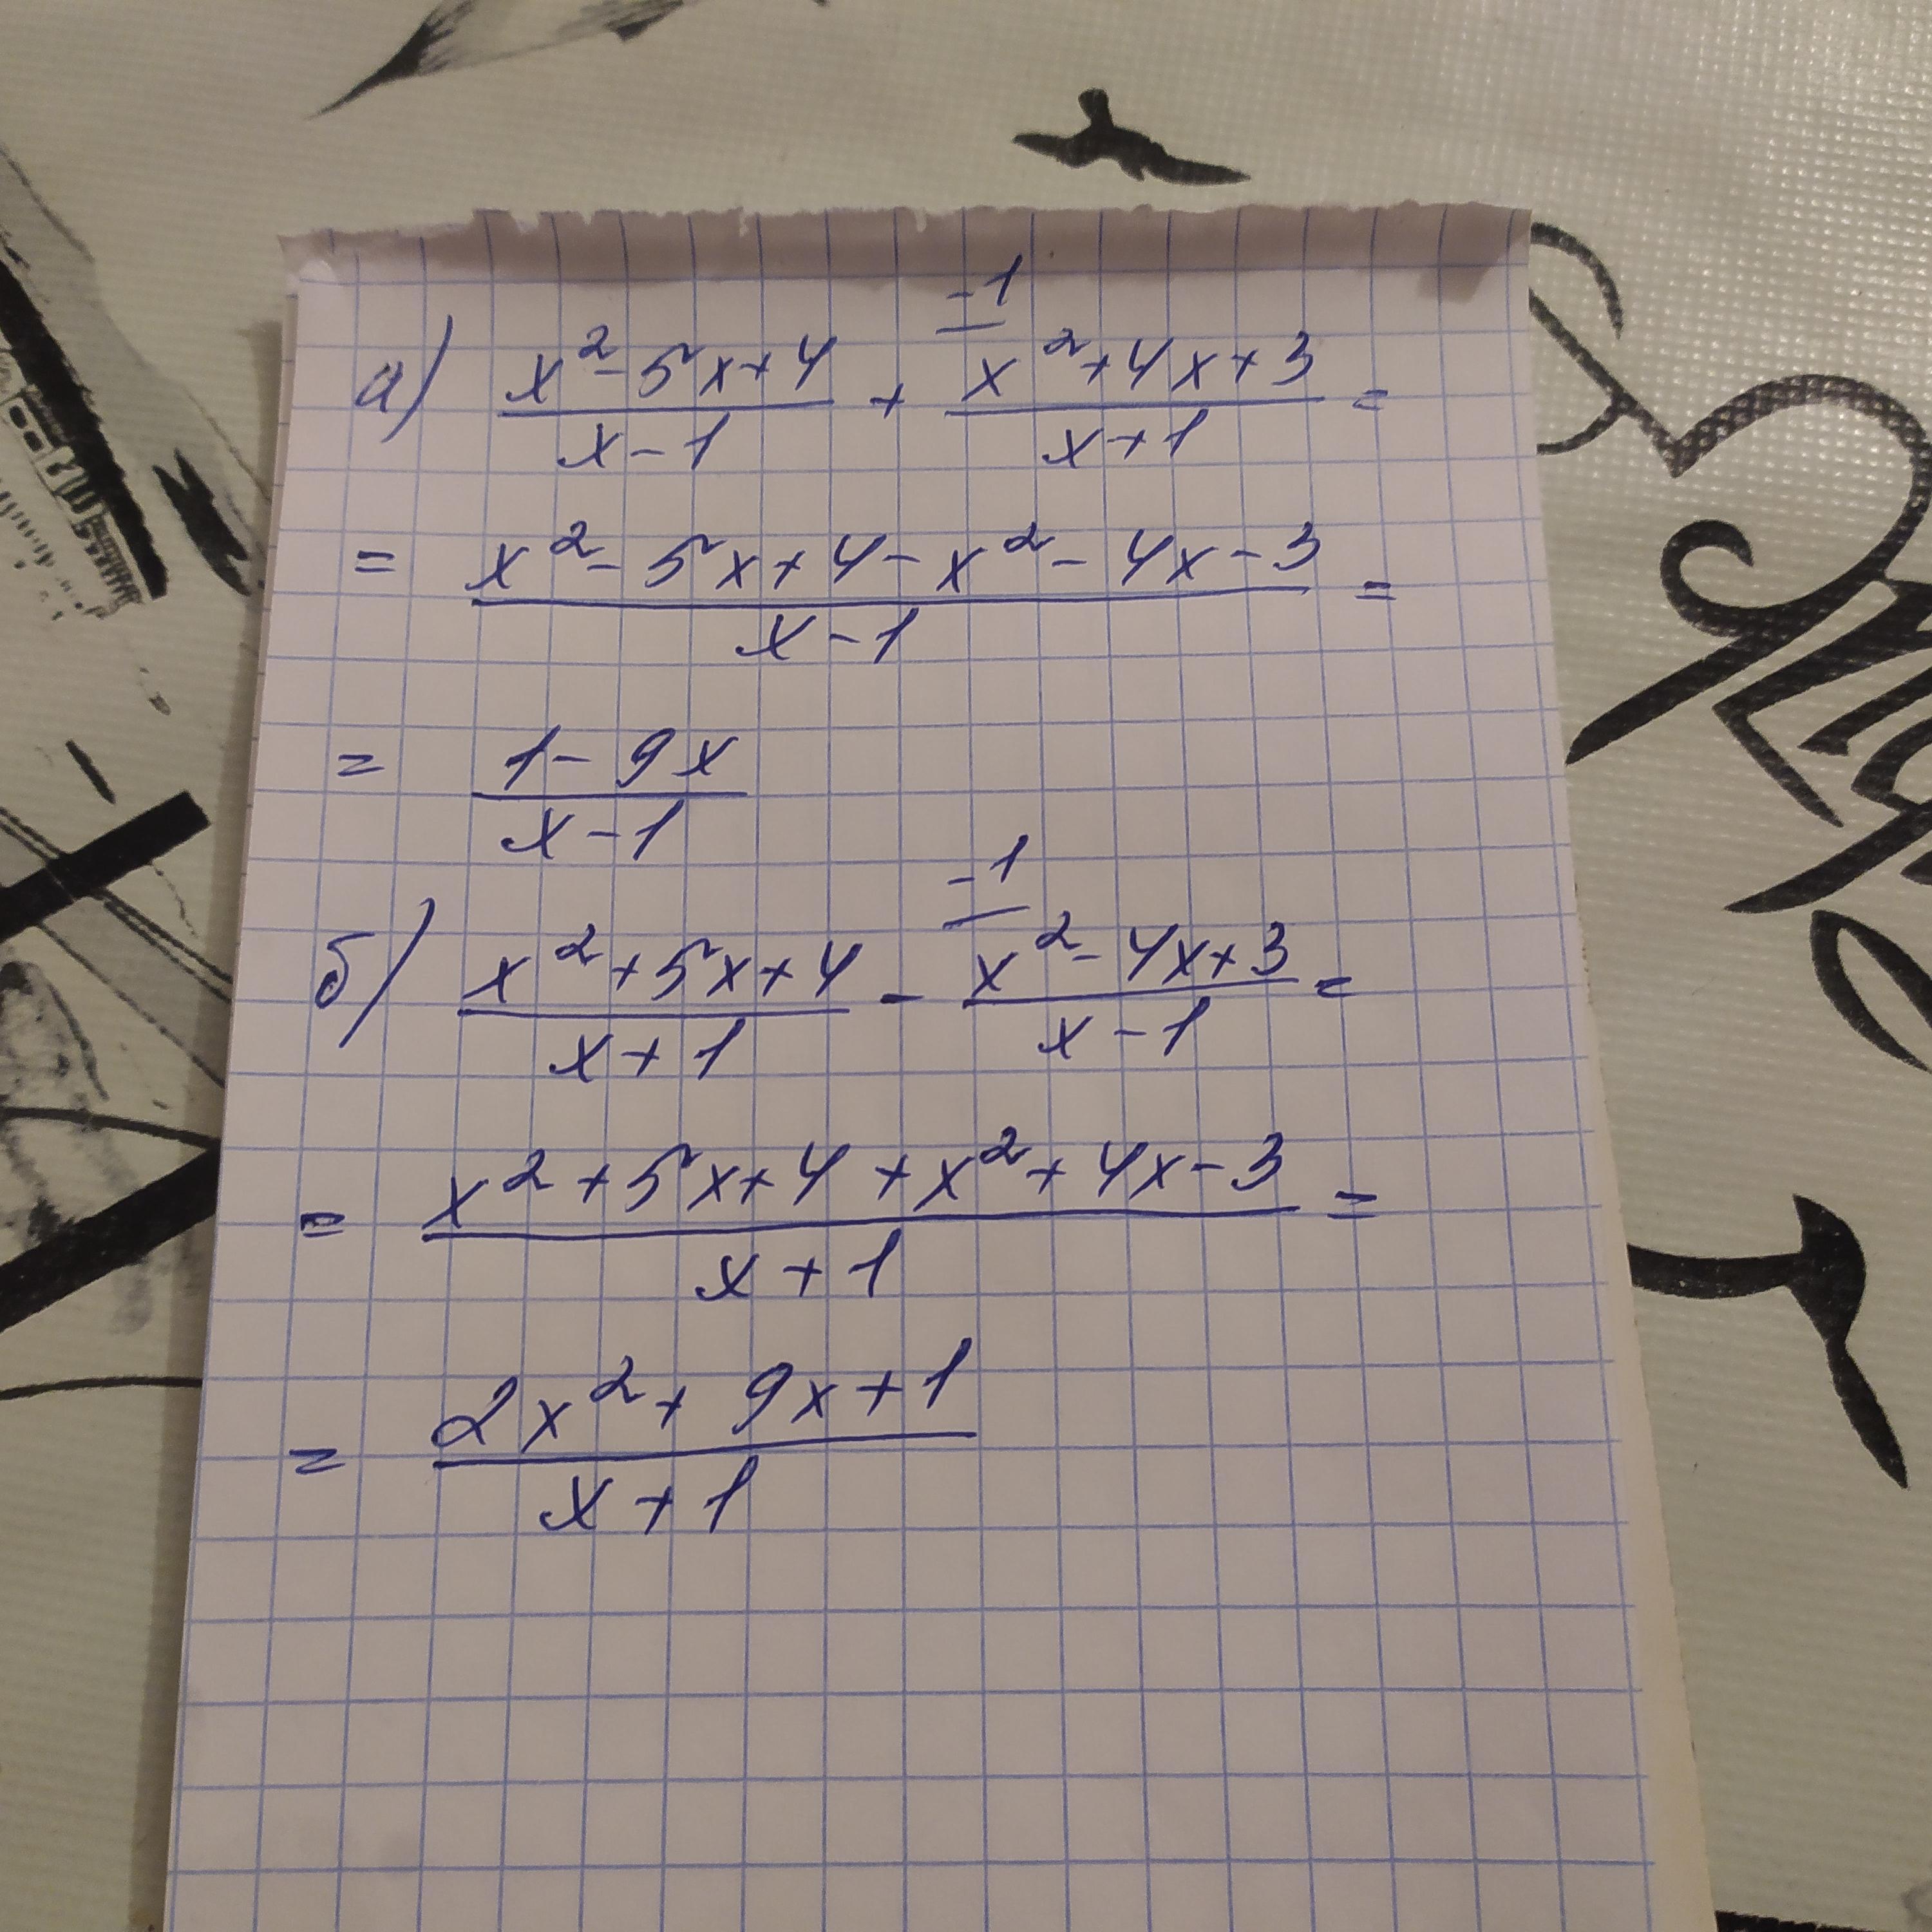 а) (x² - 5x + 4)/(x - 1) + (x² + 4x + 3)/(x + 1) =
-1
= (x² - 5x + 4 - x² - 4x - 3)/(x - 1) =
= (1 - 9x)/(x - 1)
б) (x² + 5x + 4)/(x + 1) - (x² - 4x + 3)/(x - 1) =
-1
= (x² + 5x + 4 + x² + 4x - 3)/(x + 1) =
= (2x² + 9x + 1)/(x + 1)